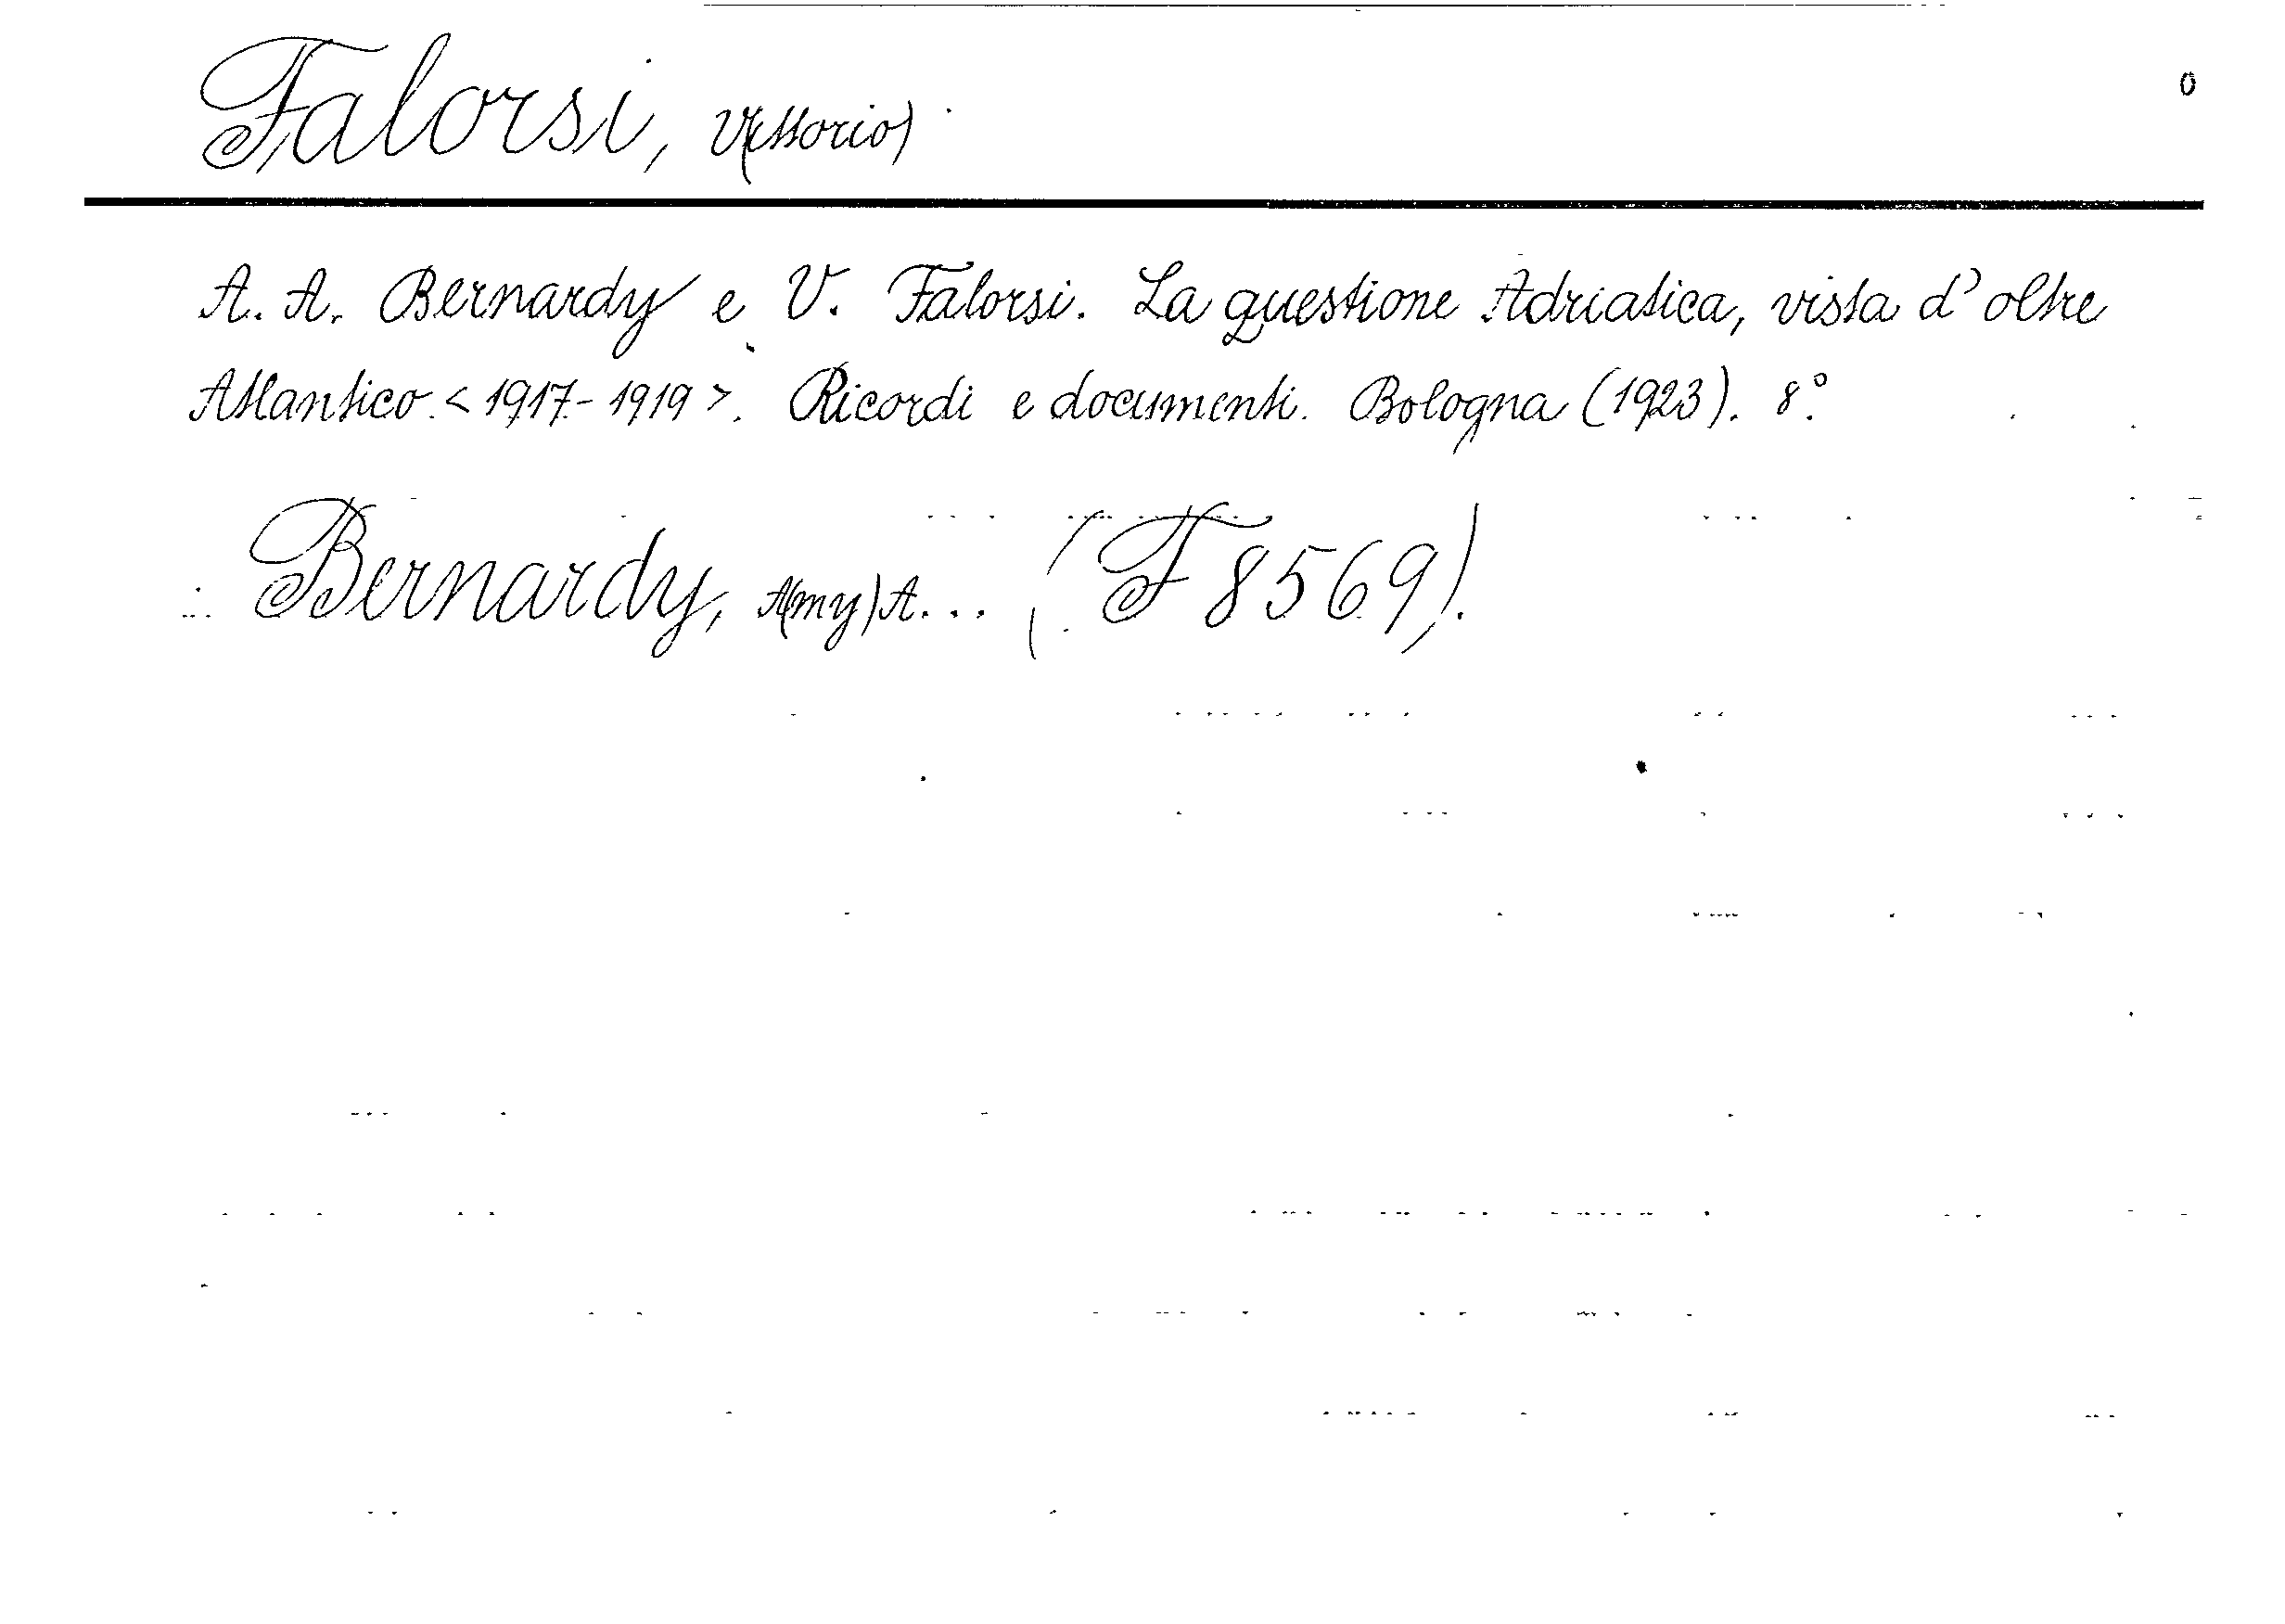 Falorsi, V(ittorio) 0
A. A. Bernardy e V. Falorsi. La questione Adriatica, vista d' oltre
Atlantico. < 1917 - 1919 >. Ricordi e documenti. Bologna (1923). 8°.
Bernardy, A(my) A... (F 8569).